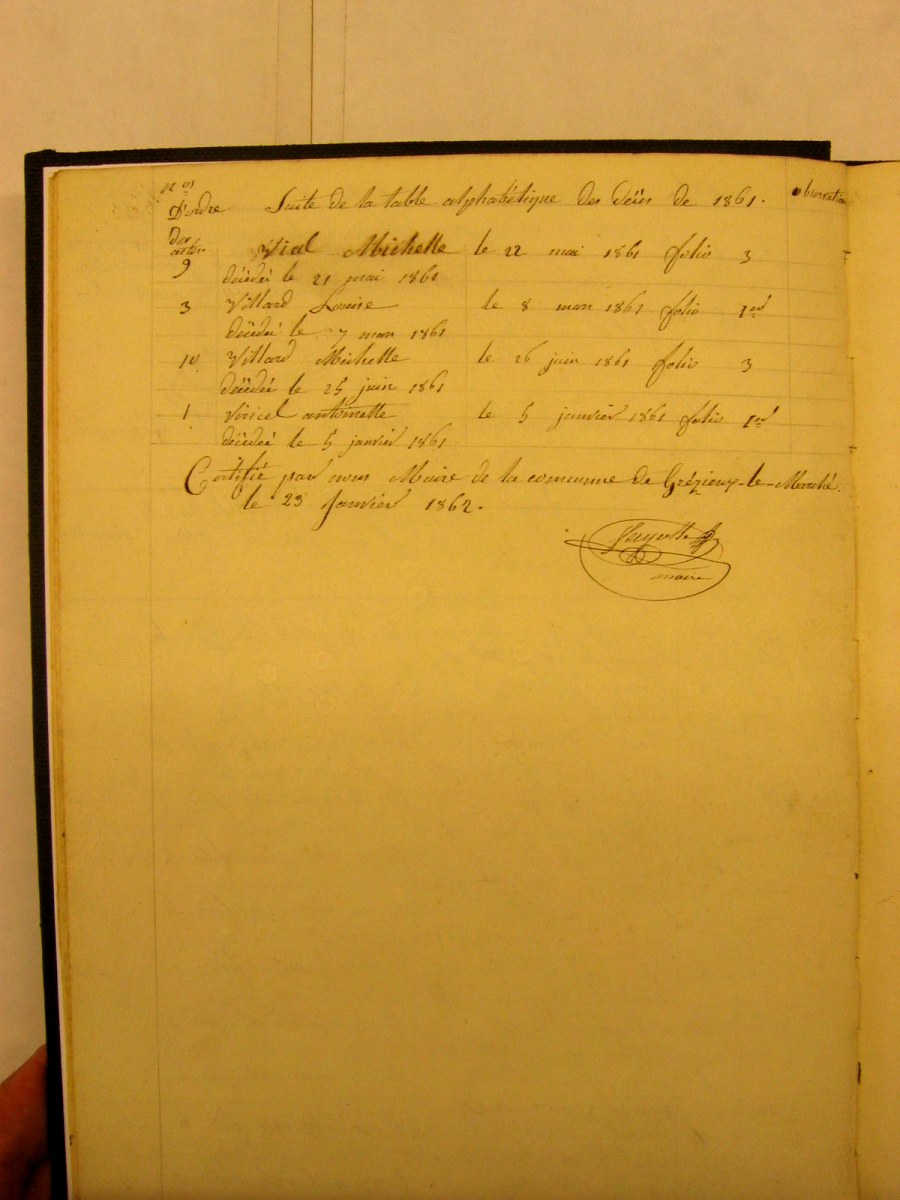 nos
D'ordre Suite de la table alphabétique des décès de 1861. observation
des actes
9 Vial Michelle le 22 mai 1861 folio 3
décédé le 21 mai 1861
3 Villard Louise le 8 mars 1861 folio 1er
décédé le 7 mars 1861
10 Villard Michelle le 26 juin 1861 folio 3
décédé le 25 juin 1861
1 Viricel antoinette le 5 janvier 1861 folio 1er
décédé le 5 janvier 1861
Certifié par nous Maire de la commune de Grézieux-le-Marché.
le 23 Janvier 1862.
maire